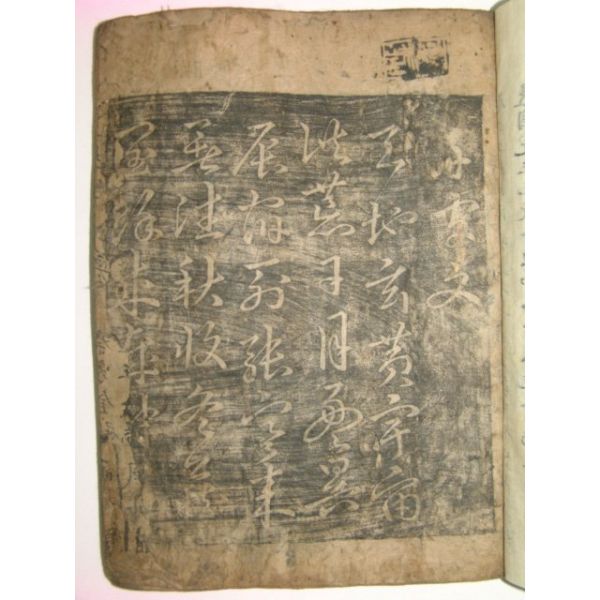 千字文
天地玄黃宇宙
洪荒日月盈昃
辰宿列張寒來
暑往秋收冬藏
閏餘成歲